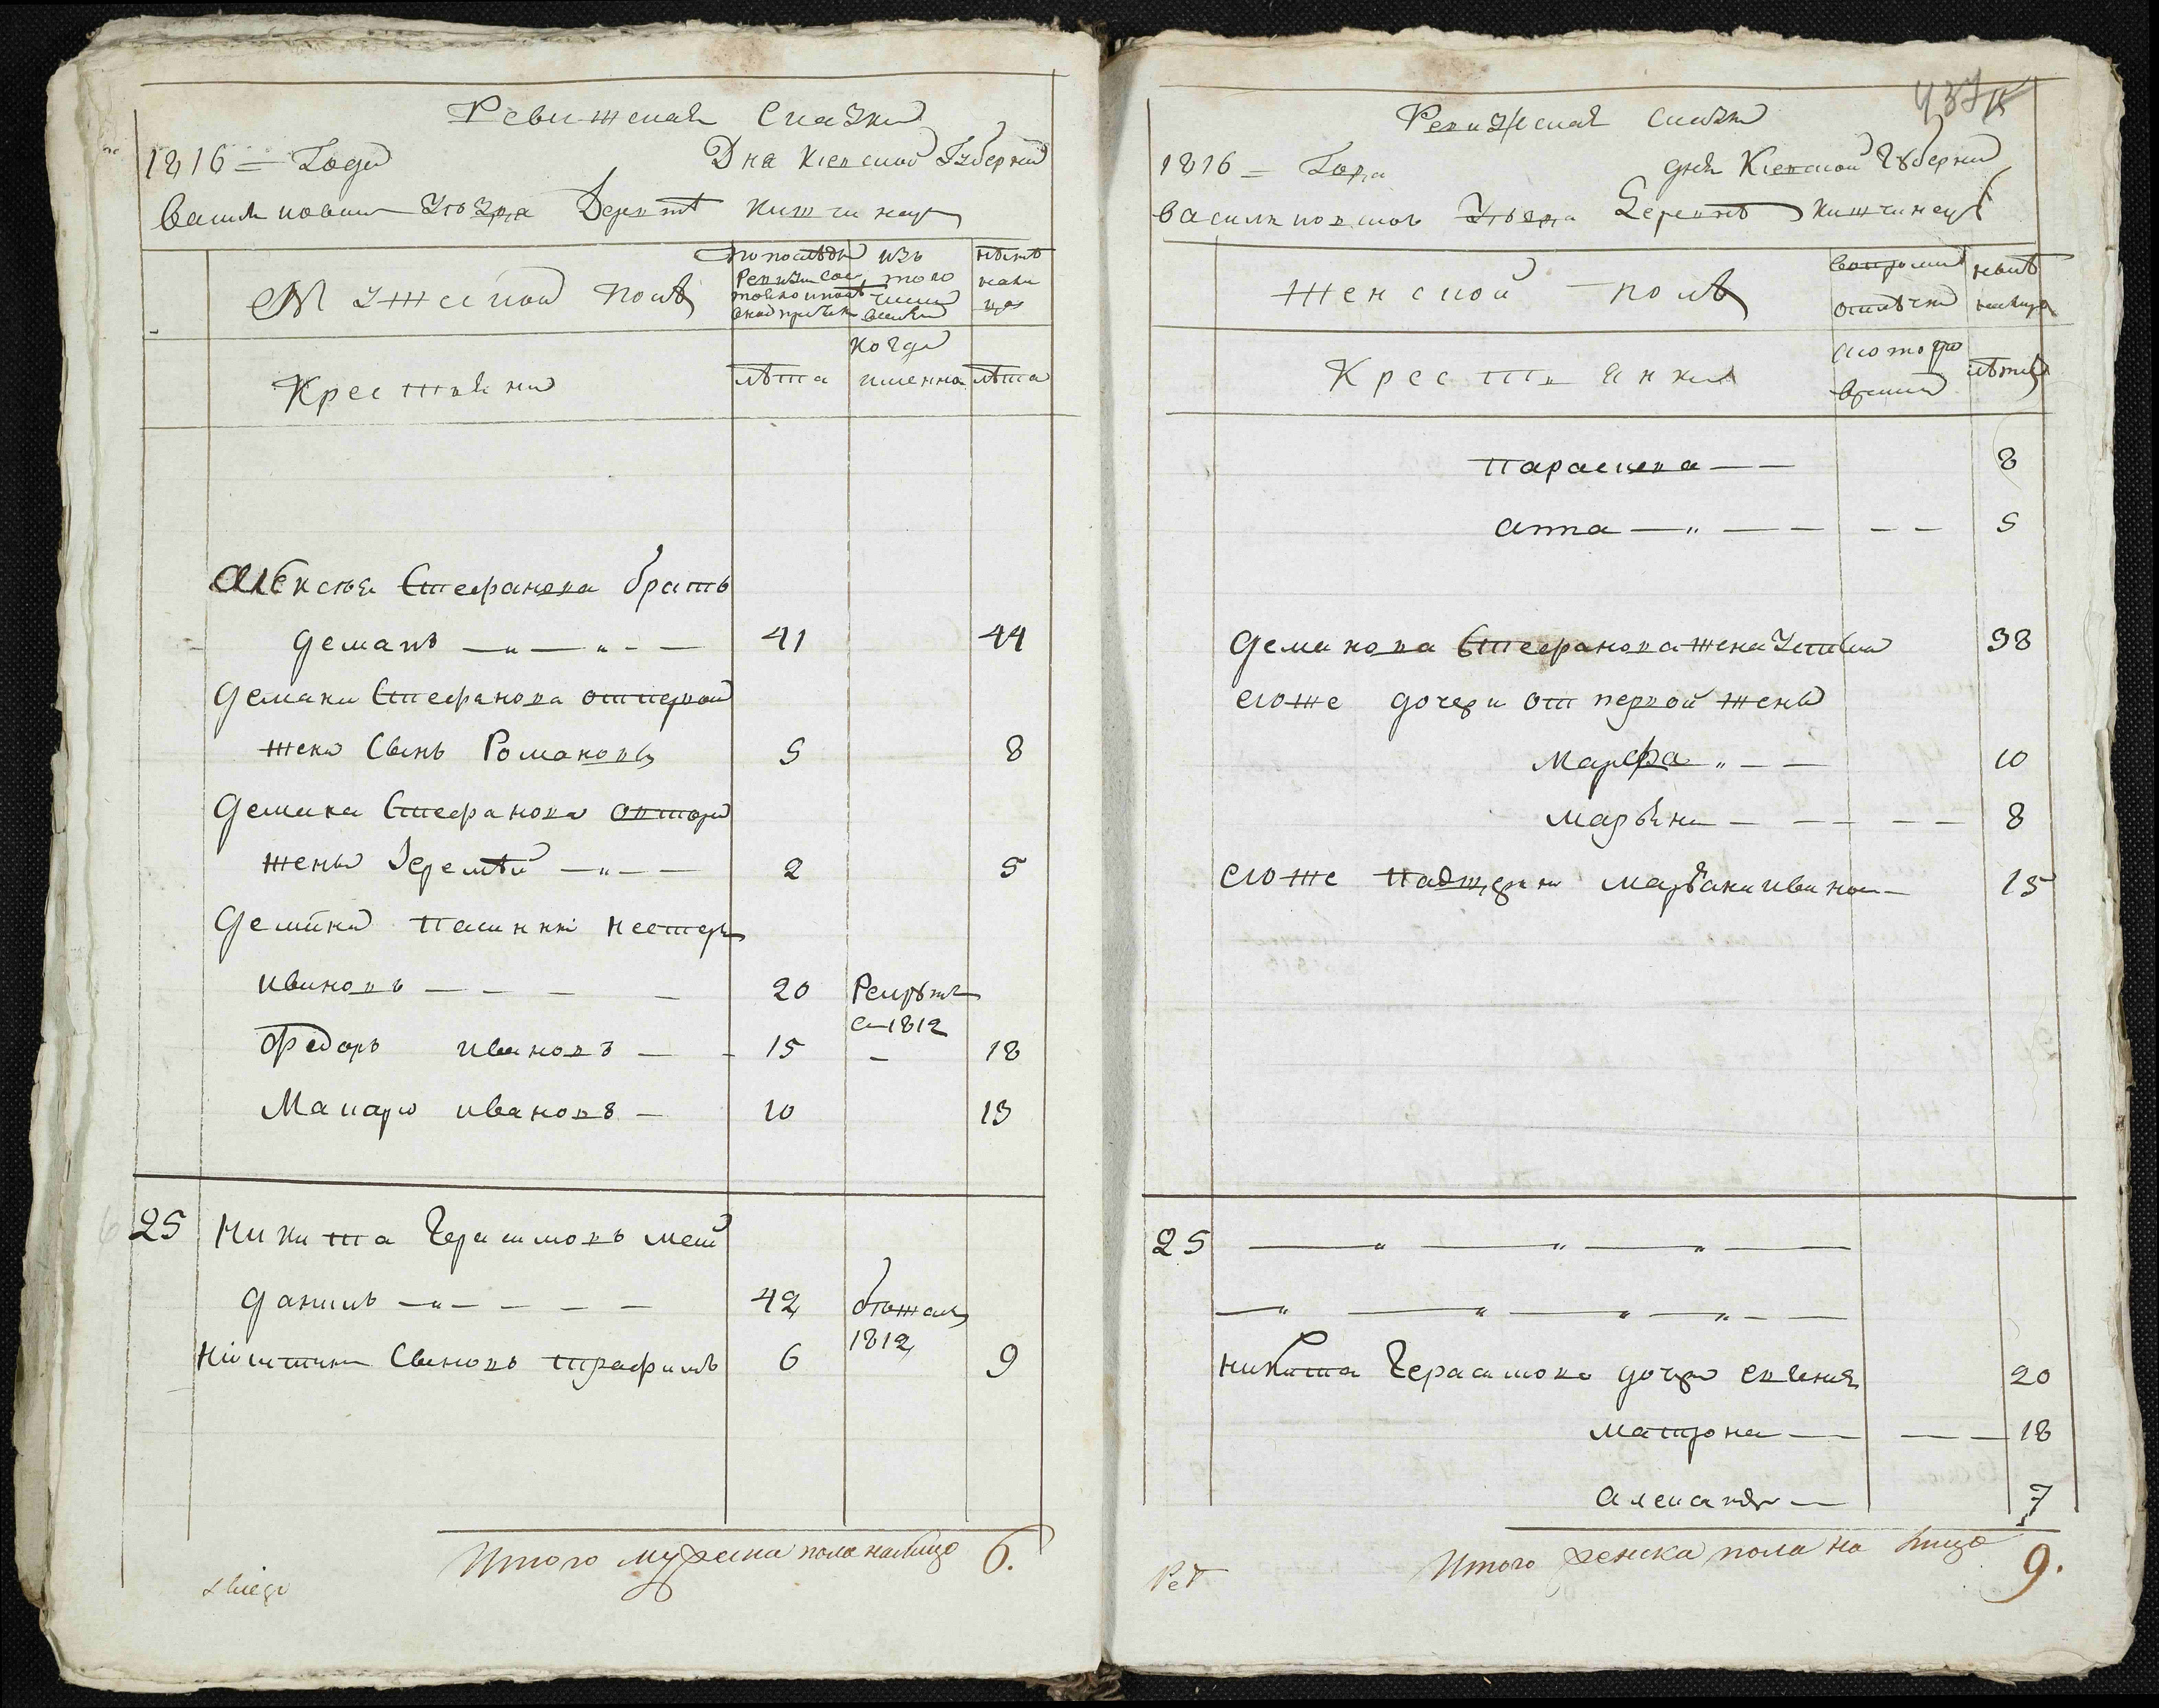 Ревижская Сказка
1816 = Года Дня Кіевской Губерніи
Васильковскаго Уѣзда Деревнѣ Кишчинецъ
Мужеской полъ
По послѣдн
Ревизіи сос
тояло и послѣ
оной прибыло
изъ
того
числа
выбыло
нынѣ
нали
цо
Крестьяни
лѣта
когда
именно
лѣта
Алексѣя Стефанова братъ
Деманъ 41 44
Демана Стефанова от первой
жени Сынъ Романовъ 5 8
Демана Стефанова от втори
жены Іеремѣй 2 5
Демяна пасинки Несторъ
Ивановъ 20 Рекрутъ
в 1812
Федоръ Ивановъ 15 18
Макаръ Ивановъ 10 13
25 Никита Герасимовъ меш
Данилъ 42 бѣжалъ
1812
Никитин Синовъ Трафимъ 6 9
Итого мужеска пола налицо 6.
Ревижская Сказка
437
1816 = Года дня Кіевской Губерніи
Васильковскаго Уѣзда Деревнѣ Кишчинецъ
Женской полъ
во временной
отлучкѣ
нынѣ
налицо
Крестьянки
с котораго
времени
лѣта
Параскева 8
Анна 5
Деманова Стефанова жена Устина 38
его же дочери от первой жены
Марфа 10
Марьяна 8
его же падщерки Марьяна Иванова 15
25
Никита Герасимова дочъ Евгения 20
Матрона 18
Александра 7
Итого женска пола на лицо 9.